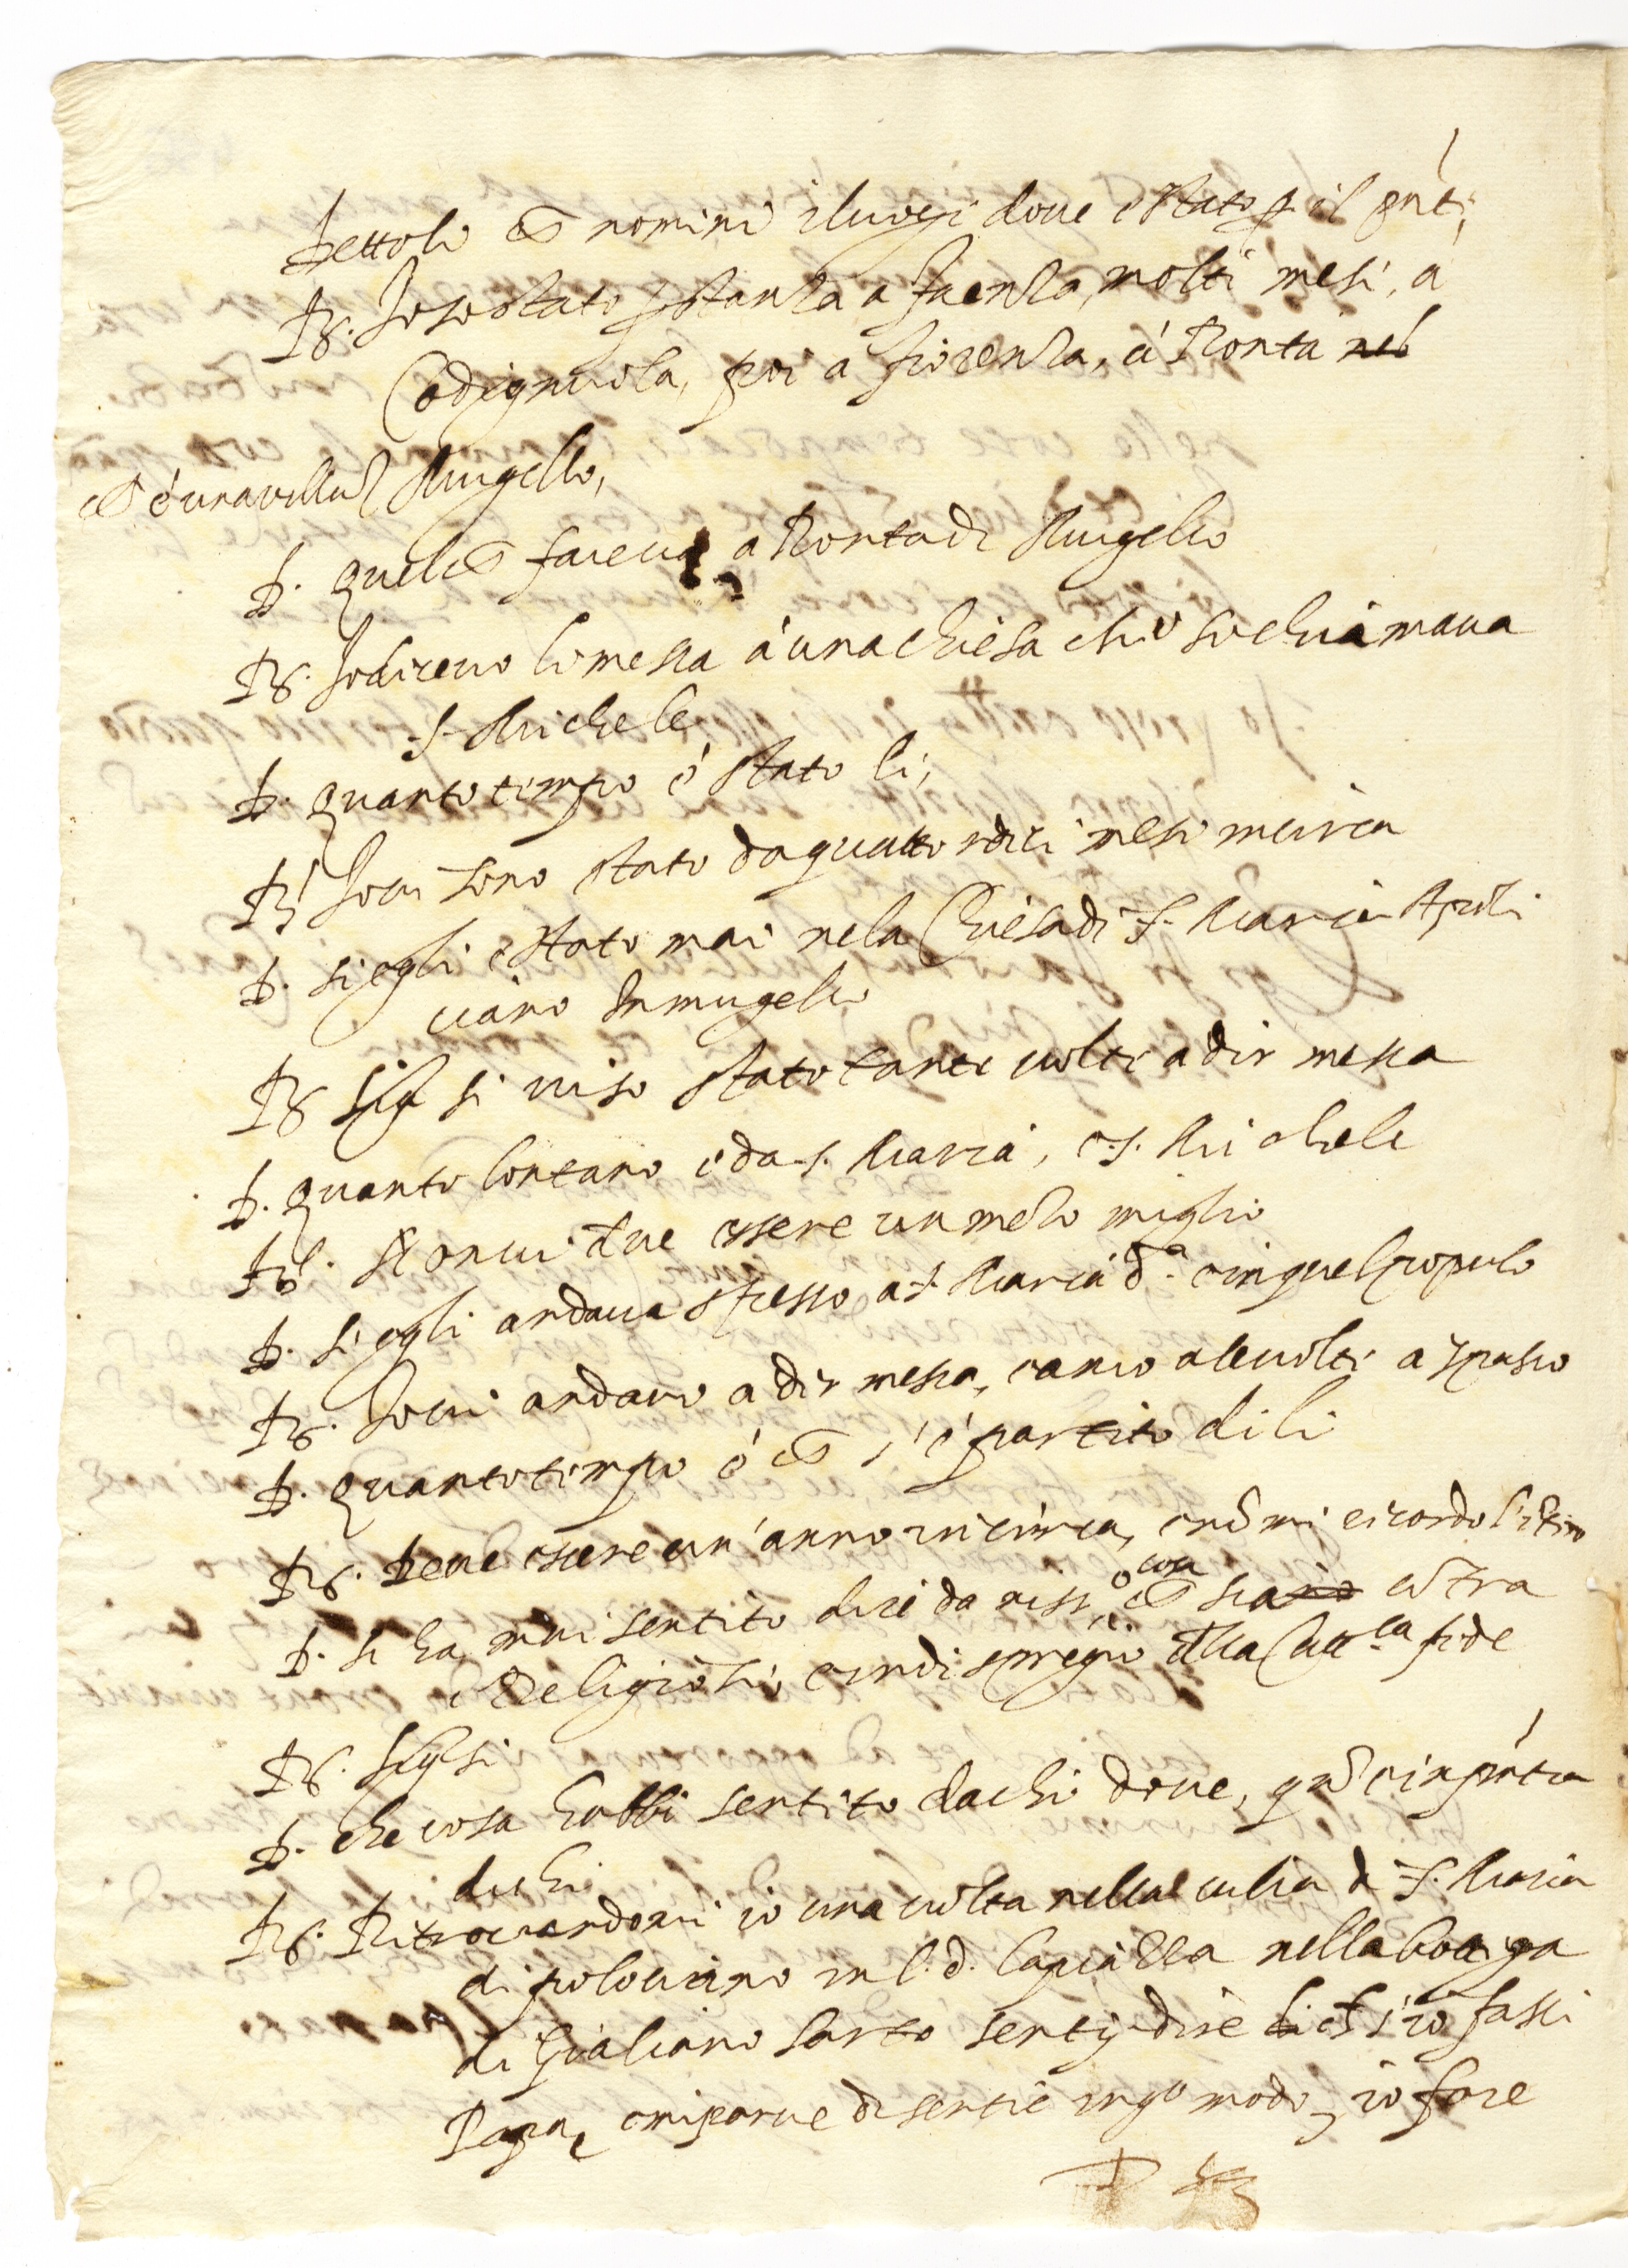 Dettoli che nomini i luogi dove è stato p. il pnte;
R. Io so stato p stanza a Faenza, molti mesi, a
Codignuola, poi a fiorenza, a Ronta nel
che è una villa Mugello,
D. quel che faceva a Ronta di Mugello
R. Io dicevo la messa à una chiesa che si chiamava
S. Michele
D. quanto tempo è stato li,
R. Io vi sono stato da quattordici mesi in circa
D. si egli è stato mai nela Chiesa di S. Maria a Puli
ciano in mugello
R. Sig si vi so stato tante volte a dir messa
D. quanto lontano è da S. Maria, a S. Michele
R. vi due essere un mezo miglio
D. si egli andava spesso a S. Maria d.a cinquel popolo
R. Io vi andavo a dir messa, e anco ale volte a spasso
D. quanto tempo è che s'è partito di li
R. Deve essere un'anno in circa, e no mi ricordo
D. si ha mai sentito dire da niss.o cosa che sia cōtra
e Religiosi, e in dispregio della Catt.ca fede
R. Sig si
D. che cosa habbi sentito da chi dove, qn e in pntia
di chi
R. Ritrovandomi io una volta nella di S. Maria
di poloiciano in l. d. la piazza nella botiga
di Giuliano Sarto sentij dire che s'io fassi
Papa, e mi parve di sentir in q.o modo, io fare